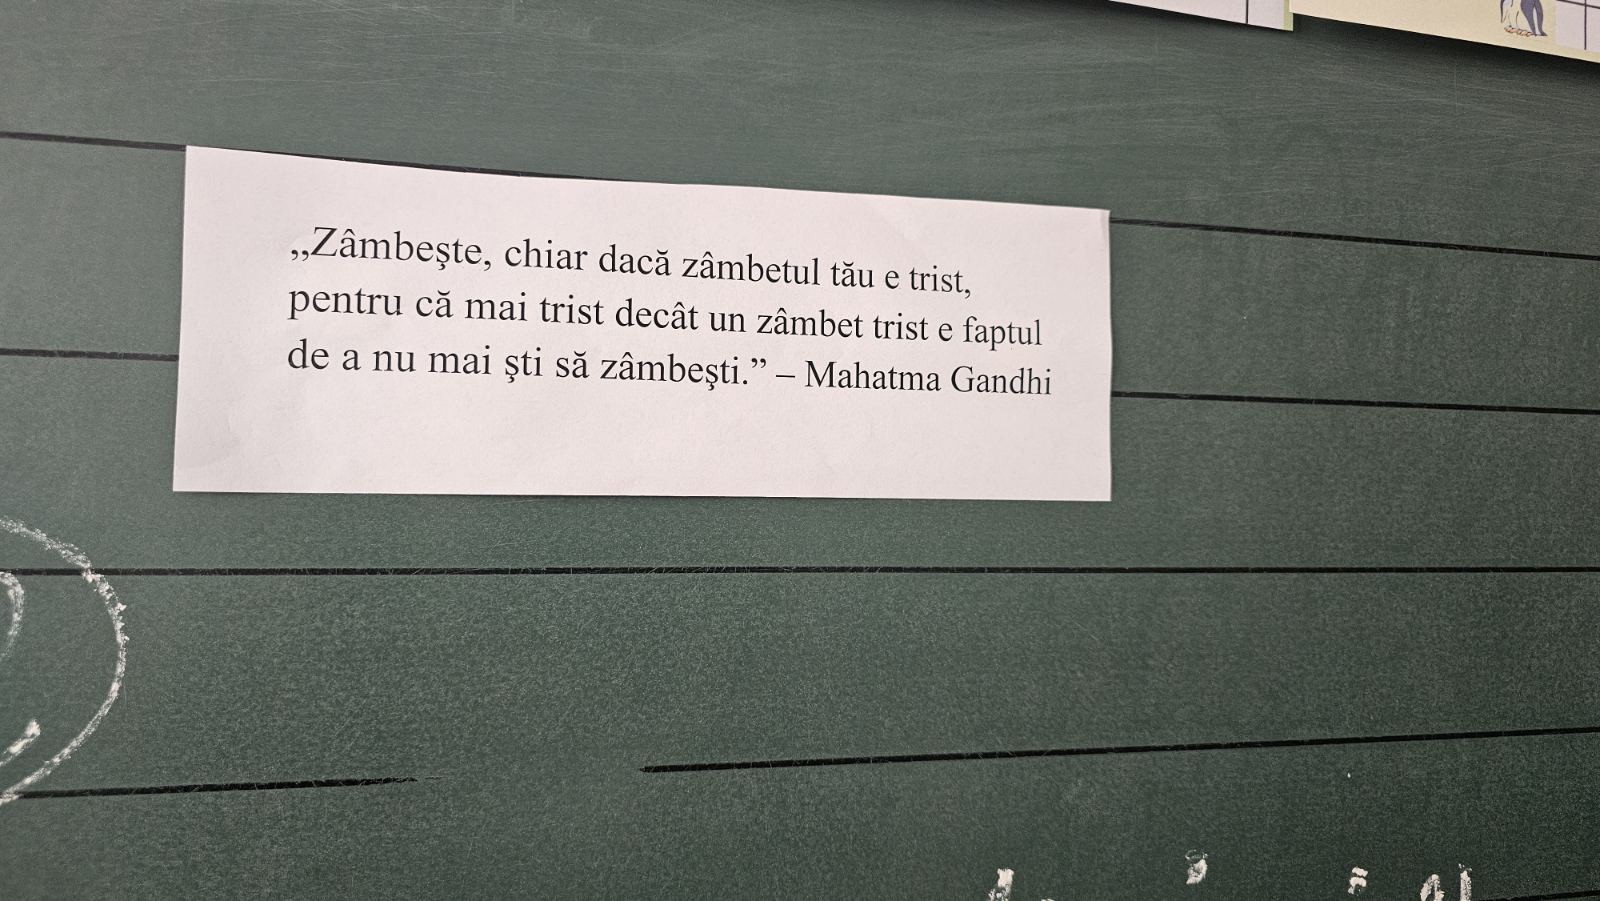 „Zâmbeşte, chiar dacă zâmbetul tău e trist,
pentru că mai trist decât un zâmbet trist e faptul
de a nu mai şti să zâmbeşti.” – Mahatma Gandhi